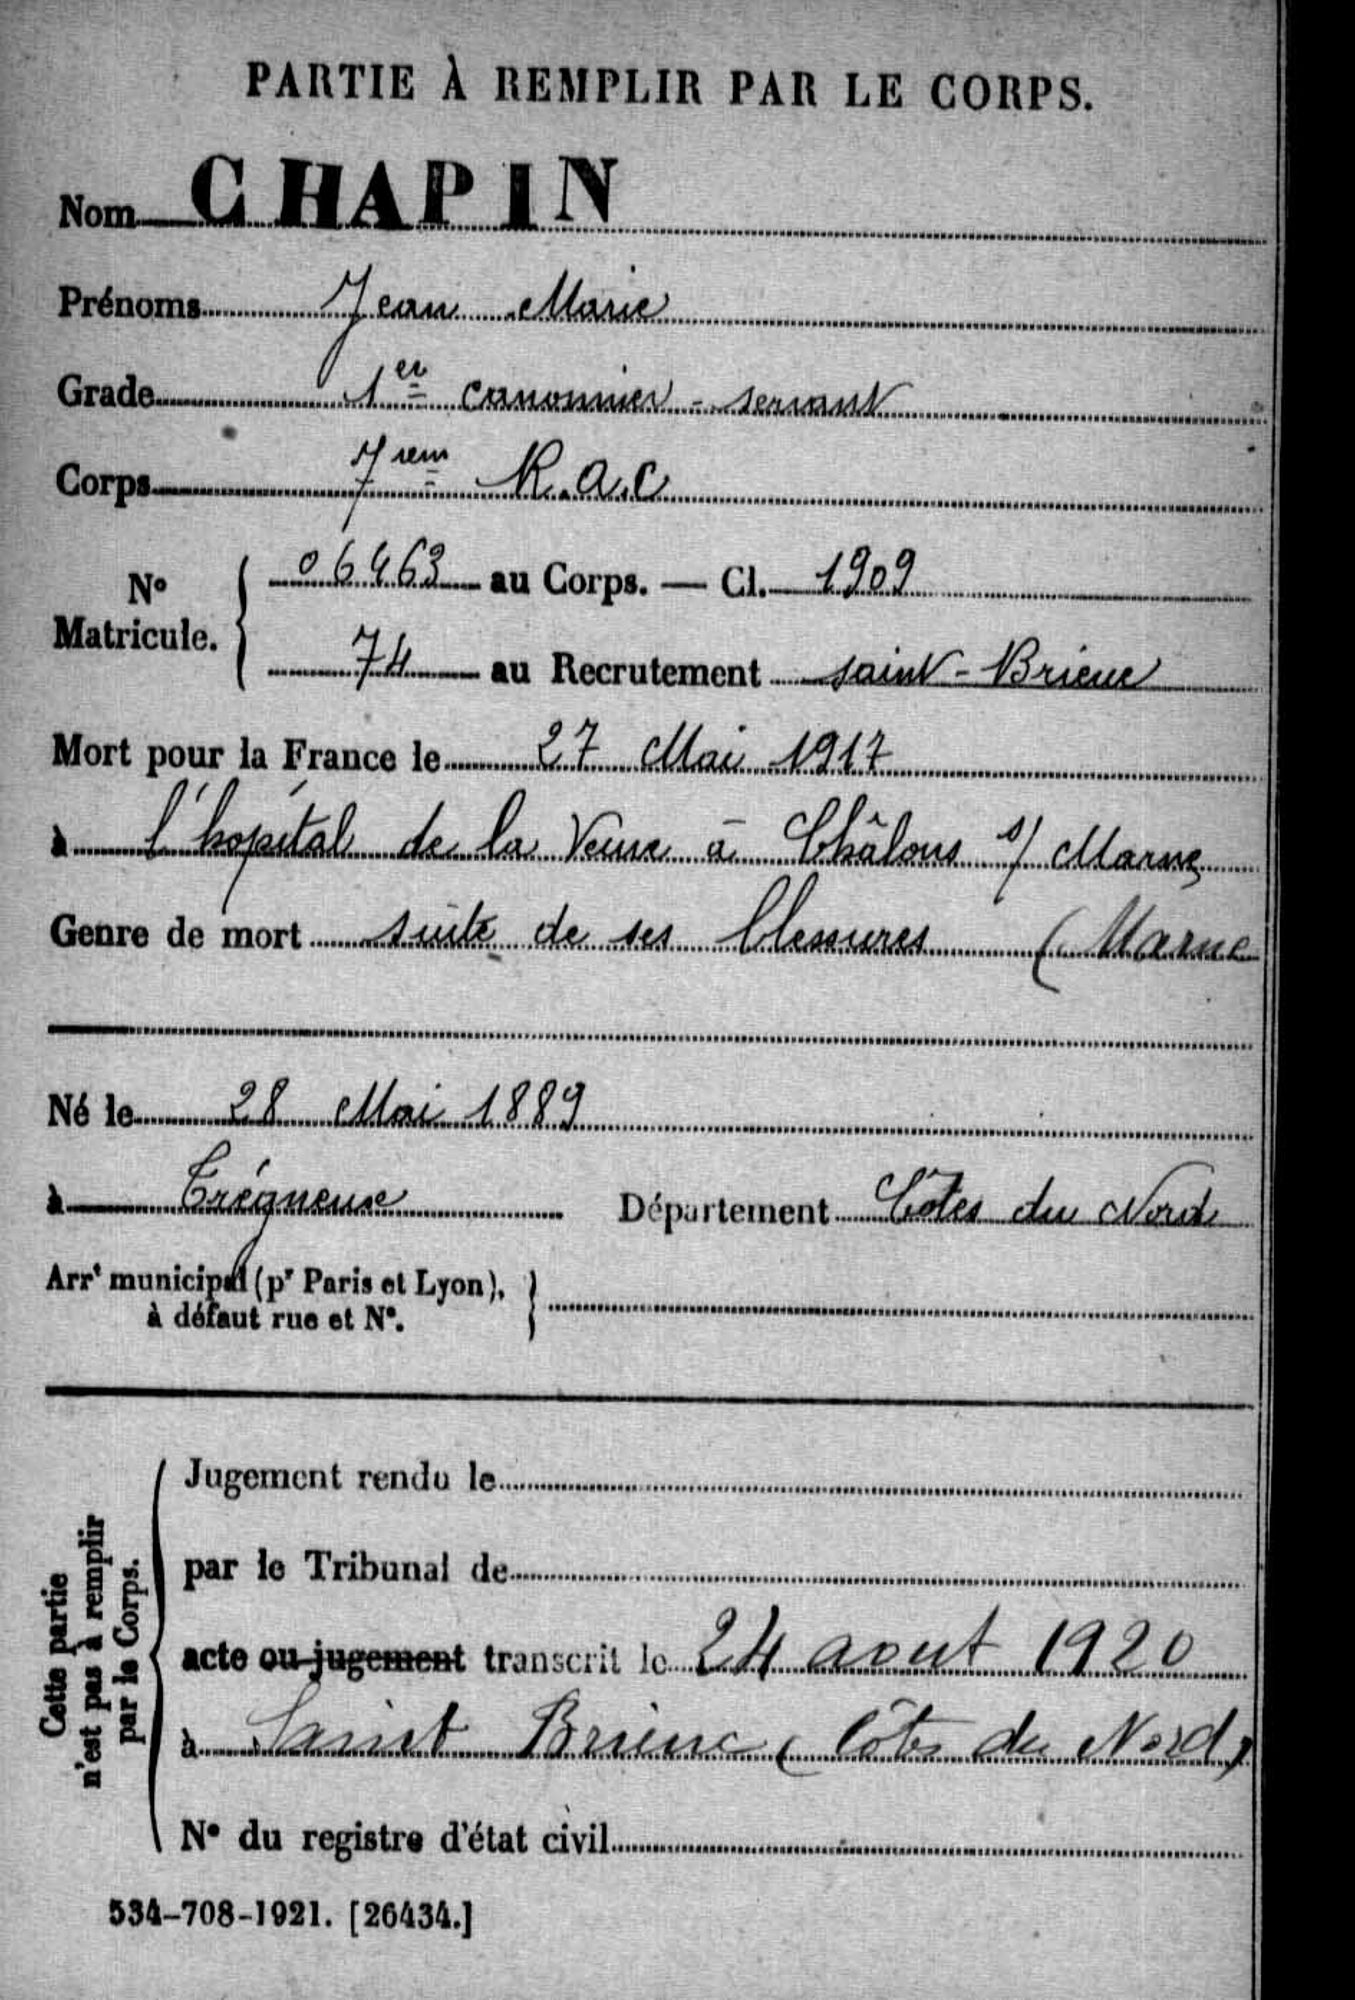 PARTIE À REMPLIR PAR LE CORPS.
Nom CHAPIN
Prénoms Jean Marie
Grade 1er canonnier-servant
Corps 7em R.A.C
No Matricule. 06463 au Corps. — Cl. 1909
74 au Recrutement saint-Brieuc
Mort pour la France le 27 Mai 1917
à l'hopital de la Veuve à Châlons s/ Marne
Genre de mort suite de ses blessures (Marne
Né le 28 Mai 1889
à Trégueux Département Côtes du Nord
Arrt municipal (pr Paris et Lyon),
à défaut rue et No.
Cette partie
n'est pas à remplir
par le Corps.
Jugement rendu le
par le Tribunal de
acte ou jugement transcrit le 24 aout 1920
à Saint Brieuc (Côtes du Nord)
No du registre d'état civil
534-708-1921. [26434.]